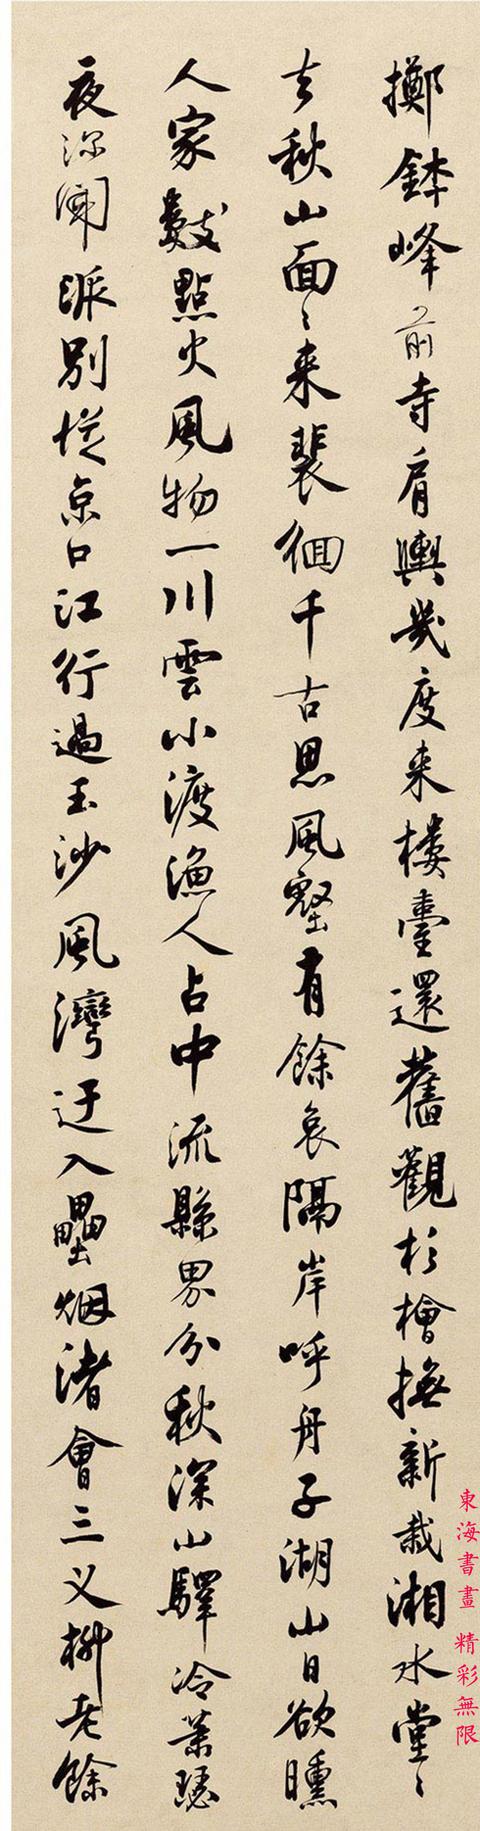 擲鉢峰前寺肩輿幾度来樓臺還舊觀杉檜撫新栽湘水堂〻
去秋山面〻来裴徊千古思風壑有餘哀隔岸呼舟子湖山日欲曛
人家數點火風物一川雲小渡漁人占中流縣界分秋深山驛冷蕭瑟
夜深聞派別從京口江行過玉沙風灣迂入壘烟渚會三叉柳老餘
東海書畫 精彩無限